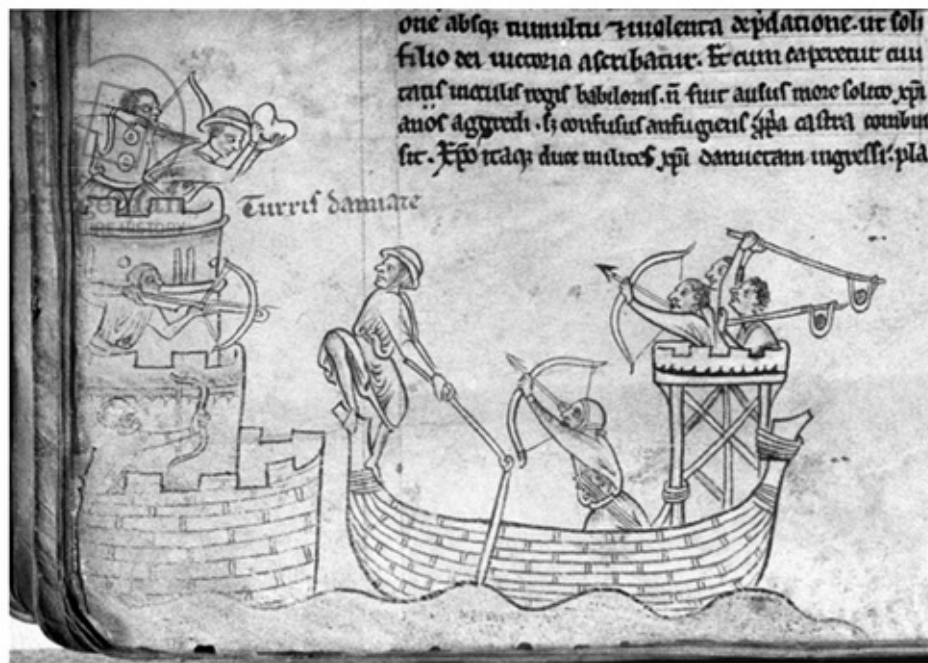 one absq; tumultu ⁊ uiolenta depdatione. ut soli
filio dei uictoria ascribatur. Et cum caperetur ciui
tatis rogis babilonis. n̄ fuit ausus more solito xp̄i
anos aggredi. sꝫ confusus aufugiens castra combus
sit. Xp̄o itaq; duce milites xp̄i damietam ingressi. pla
Turris damiate